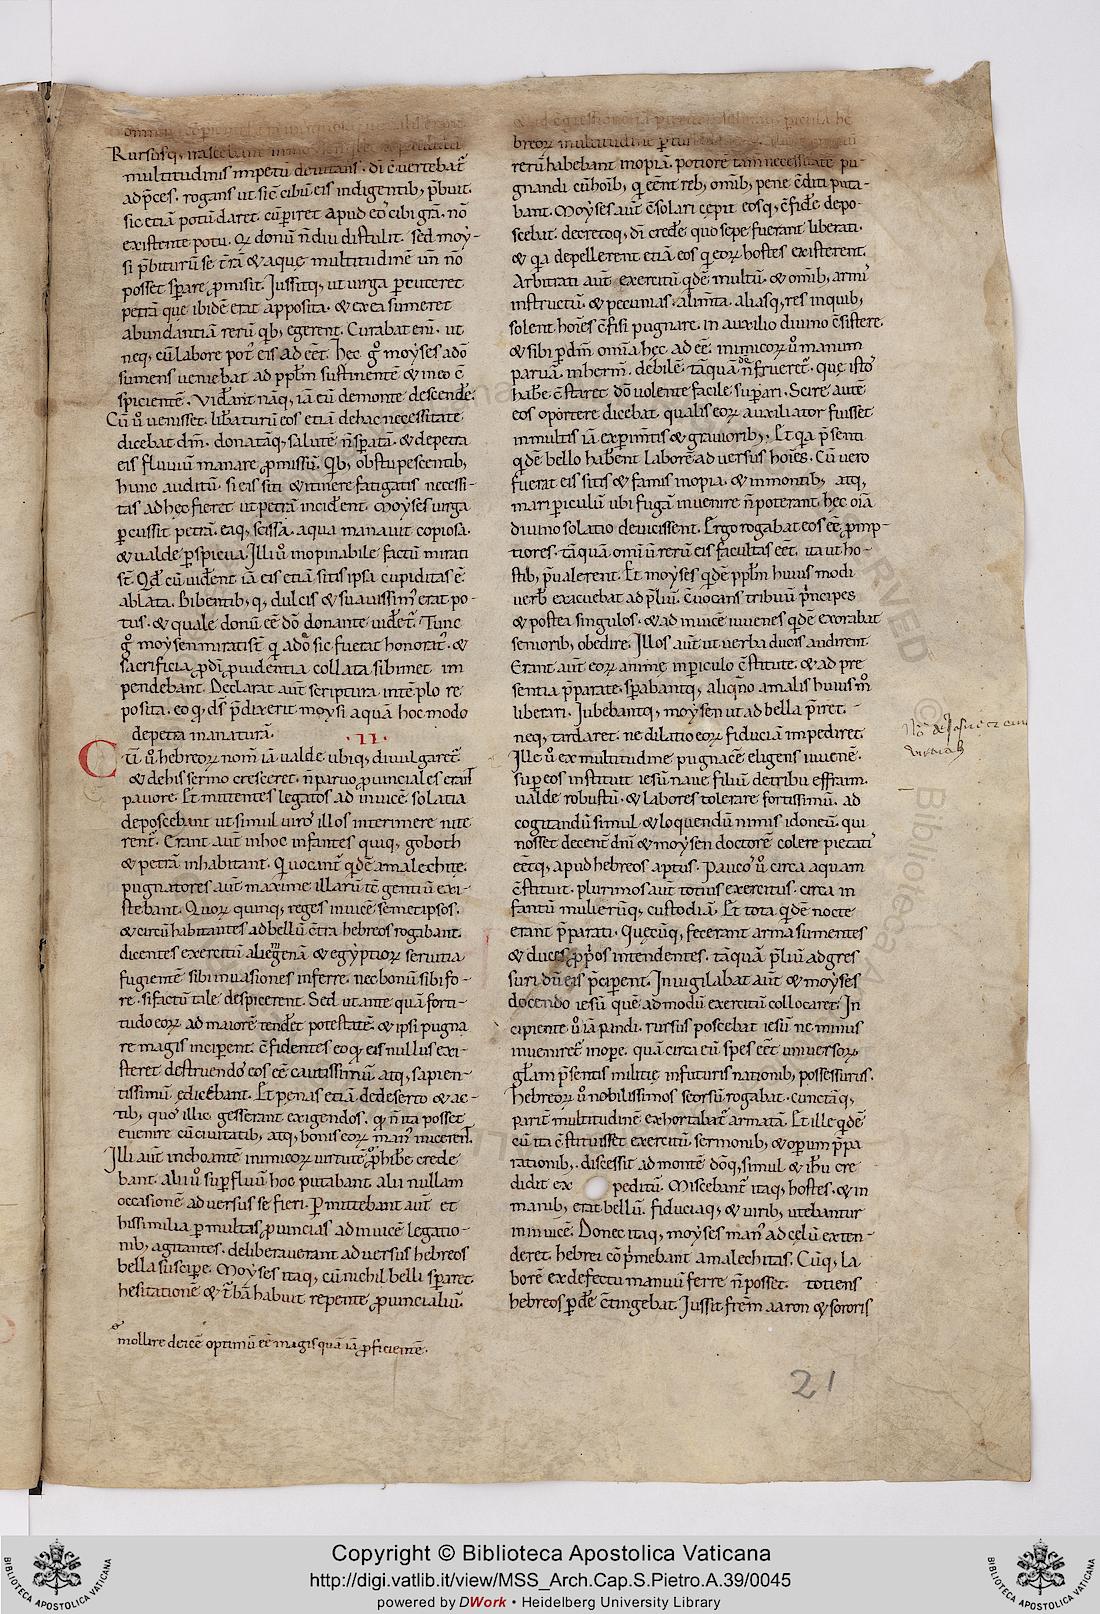 Rursusq; irascebant
multitudinis impetū deuitans. dī c̄uertebat̄
ad p̄ces. rogans ut sic̄ cibū eis indigentib; p̄buit.
sic etiā potū daret. cū piret apud eos cibi grā. nō
existente potu. Qd donū n̄ diu distulit. sed moy-
si p̄biturū se t̄rā & aquę multitudinē un̄ nō
posset sp̄are p̄misit. Jussitq; ut uirga p̄cuteret
petrā que ibidē erat apposita. & ex ea sumeret
abundantiā rerū qb; egerent. Curabat eni. ut
neq; cū labore pot; eis ad eēt. Hęc g moyses a dō
sumens ueniebat ad pplm sustinentē & in eo c̄
spicientē. Viderant nāq; iā eū de monte descende.
Cū ū uenisset. libaturū eos etiā de hac necessitate
dicebat dm̄. donatāq; salutē n̄ sp̄atā. & de petra
eis fluuiū manare p̄missū. Qib; obstupescentib;
hunc auditū. si eis siti & itinere fatigatis necessi-
tas ad hęc fieret ut petrā inciderent. Moyses uirga
p̄cussit petrā. eaq; scissa. aqua manauit copiosa.
& ualde p̄spicua. Illi ū inopinabile factū mirati
st̄. Qd cū uiderent iā eis etiā sitis ipsa cupiditas ē
ablata. Bibentib; q; dulcis & suauissim' erat po-
tus. & quale donū eē dō donante uideret̄. Tunc
g moysen mirati st̄ qi a dō sic fuerat honorat'. &
sacrificia p̄ dī p̄uidentia collata sibimet im
pendebant. Declarat aut̄ scriptura in tēplo re
posita. eo q; ds̄ p̄dixerit moysi aquā hoc modo
de petra manaturā. .II.
Cū ū hebreorum nom̄ iā ualde ubiq; diuulgaret̄.
& de his sermo cresceret. n̄ paruo p̄uinciales erant
pauore. Et mittentes legatos ad inuicē solatia
deposcebant ut simul uiros illos interimere nite
rent̄. Erant aut̄ in hoc infantes quiq; goboth
& petrā inhabitant. Qi uocant̄ qdē amalechite.
pugnatores aut̄ maxime illarū tc̄ gentiū exi-
stebant. Quorum quinq; reges inuicē semetipsos.
& circū habitantes ad bellū c̄tra hebreos rogabant.
dicentes exercitū alienigenā & egyptiorum seruitia
fugientē sibi inuasiones inferre. nec bonū sibi fo-
re. si fictū tale despicerent. Sed ut ante quā forti-
tudo eorum ad maiorē tenderet potestatē. & ipsi pugna
re magis inciperent. c̄fidentes eo q; eis nullus exi-
steret destruendo eos eē cautissimū. atq; sapien-
tissimū edicebant. Et penas etiā de deserto & ac-
tib; quos illic gesserant exigendos. qd n̄ ita posset
euenire cū ciuitatib; atq; bonis eorum man' inicerent.
Illi aut̄ inchoantē inimicorum uirtutē p̄hibe crede
bant. alii ū sup̄fluū hoc putabant. alii nullam
occasionē aduersus se fieri. P̄mittebant aut̄ et
his similia p̄ multas p̄uincias ad inuicē legatio-
nib; agitantes. deliberauerant aduersus hebreos
bella suscipe. Moyses itaq; cū nichil belli sp̄aret.
hesitationē & t̄bā habuit repente p̄uincialiū.
mollire deicē optimū eē magis quā iā p̄ficientē.
breorum multitudine
rerū habebant inopiā. potiorē tam̄ necessitatē pu-
gnandi cū hoīb; qi eēnt reb; omīb; pene c̄diti puta-
bant. Moyses aut̄ c̄solari cepit eosq; c̄fidere depo-
scebat. decretoq; dī crede. quo sepe fuerant liberati.
& qa depellerent etiā eos qi eorum hostes existerent.
Arbitrati aut̄ exercitū qdē multū. & omīb; armis
instructū. & pecunias. alim̄ta. aliasq; res in quib;
solent hoīes c̄fisi pugnare. in auxilio diuino c̄sistere.
& sibi p̄ dm̄. omia hęc adeē. inimicorum ū manum
paruā. inhermē. debilē. tāquā n̄ de frueret̄. que isto
habe c̄staret dō uolente facile sup̄ari. Scire autē
eos oportere dicebat. qualis eorum auxiliator fuisset
in multis iā experim̄tis & grauiorib; Et qa p̄senti
qdē bello haberent laborē aduersus hoīes. Cū uero
fuerat eis sitis & famis inopia. & in montib; atq;
mari periculū ubi fugā inuenire n̄ poterant. hęc oīa
diuino solatio deuicissent. Ergo rogabat eos eē p̄mp-
tiores. tāquā omiū rerū eis facultas eēt. ita ut ho-
stib; p̄ualerent. Et moyses qdē pplm huius modi
uerb' exacuebat ad p̄liū. C̄uocans tribuū p̄ncipes
& postea singulos. & ad inuicē iuuenes qdē exorabat
seniorib; obedire. Illos aut̄ ut uerba ducis audirent.
Erant aut̄ eorum animę in periculo c̄stitute. & ad pre
sentia p̄parate. sp̄abantq; aliqn̄o a malis huius m̊
liberari. Jubebantq; moysen ut ad bella p̄iret.
neq; tardaret. ne dilatio eorum fiduciā impediret.
Ille ū ex multitudine pugnacē eligens iuuenē.
sup̄ eos instituit iesū naue filiū de tribu effraim.
ualde robustū. & labores tolerare fortissimū. ad
cogitandū simul & loquendū nimis idoneū. qui
nosset decent̄ dm̄ & moysen doctorē colere pietatis
eētq; apud hebreos aptus. Paucos ū circa aquam
c̄stituit. plurimos aut̄ totius exercitus. circa in
fantū mulierūq; custodiā. Et tota qdē nocte
erant p̄parati. Quęcūq; fecerant arma sumentes
& duces p̄p̄os intendentes. tāquā p̄liū adgres
suri dū eis p̄ciperent. Inuigilabat aut̄ & moyses
docendo iesū quē ad modū exercitū collocaret. In
cipiente ū iā pandi. rursus poscebat iesū ne minus
inueniret̄ in ope. quā circa eū spes eēt uniuersorum
glam p̄sentis militię in futuris nationib; possessurus.
Hebreorum ū nobilissimos seorsū rogabat. cunctāq;
parit̄ multitudinē exhortabat̄ armatā. Et ille qdē
cū ita c̄stituisset exercitū sermonib; & operum p̄pa
rationib; discessit ad montē dōq; simul & ihū cre
didit expeditū. Miscebant̄ itaq; hostes. & in
manib; erat bellū. fiduciaq; & uirib; utebantur
inuicē. Donec itaq; moyses man' ad celū exten-
deret. hebrei cōp̄mebant amalechitas. Cūq; la
borē ex defectu manuū ferre n̄ posset. totiens
hebreos p̄dere c̄tingebat. Jussit frem̄ aaron & sororis
21
Copyright © Biblioteca Apostolica Vaticana
http://digi.vatlib.it/view/MSS_Arch.Cap.S.Pietro.A.39/0045
powered by DWork • Heidelberg University Library